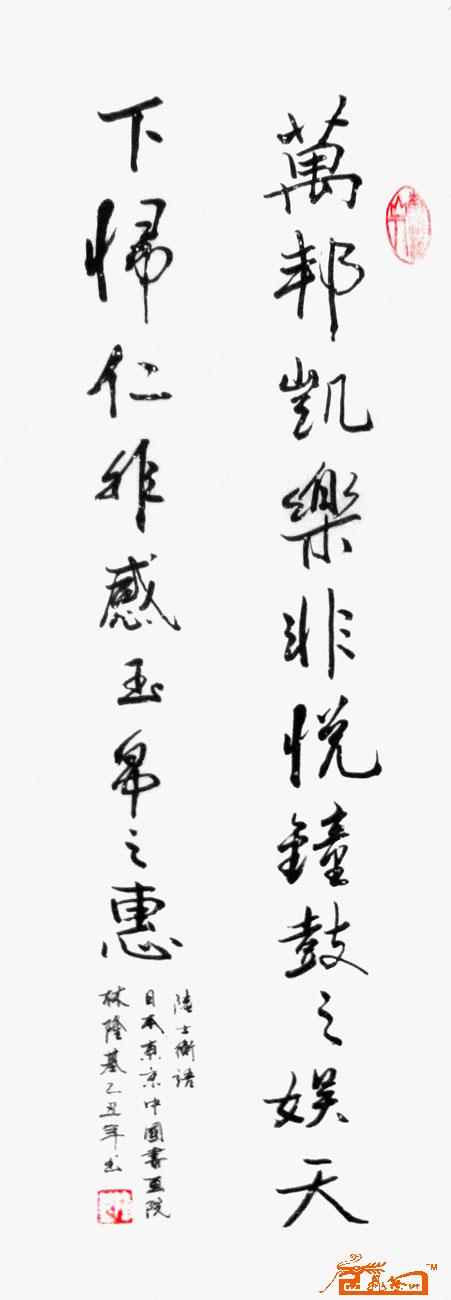 萬邦凱樂非悅鐘鼓之娛天
下歸仁非感玉帛之惠
陸士衡語
日本東京中國書画院
林隆基乙丑年書